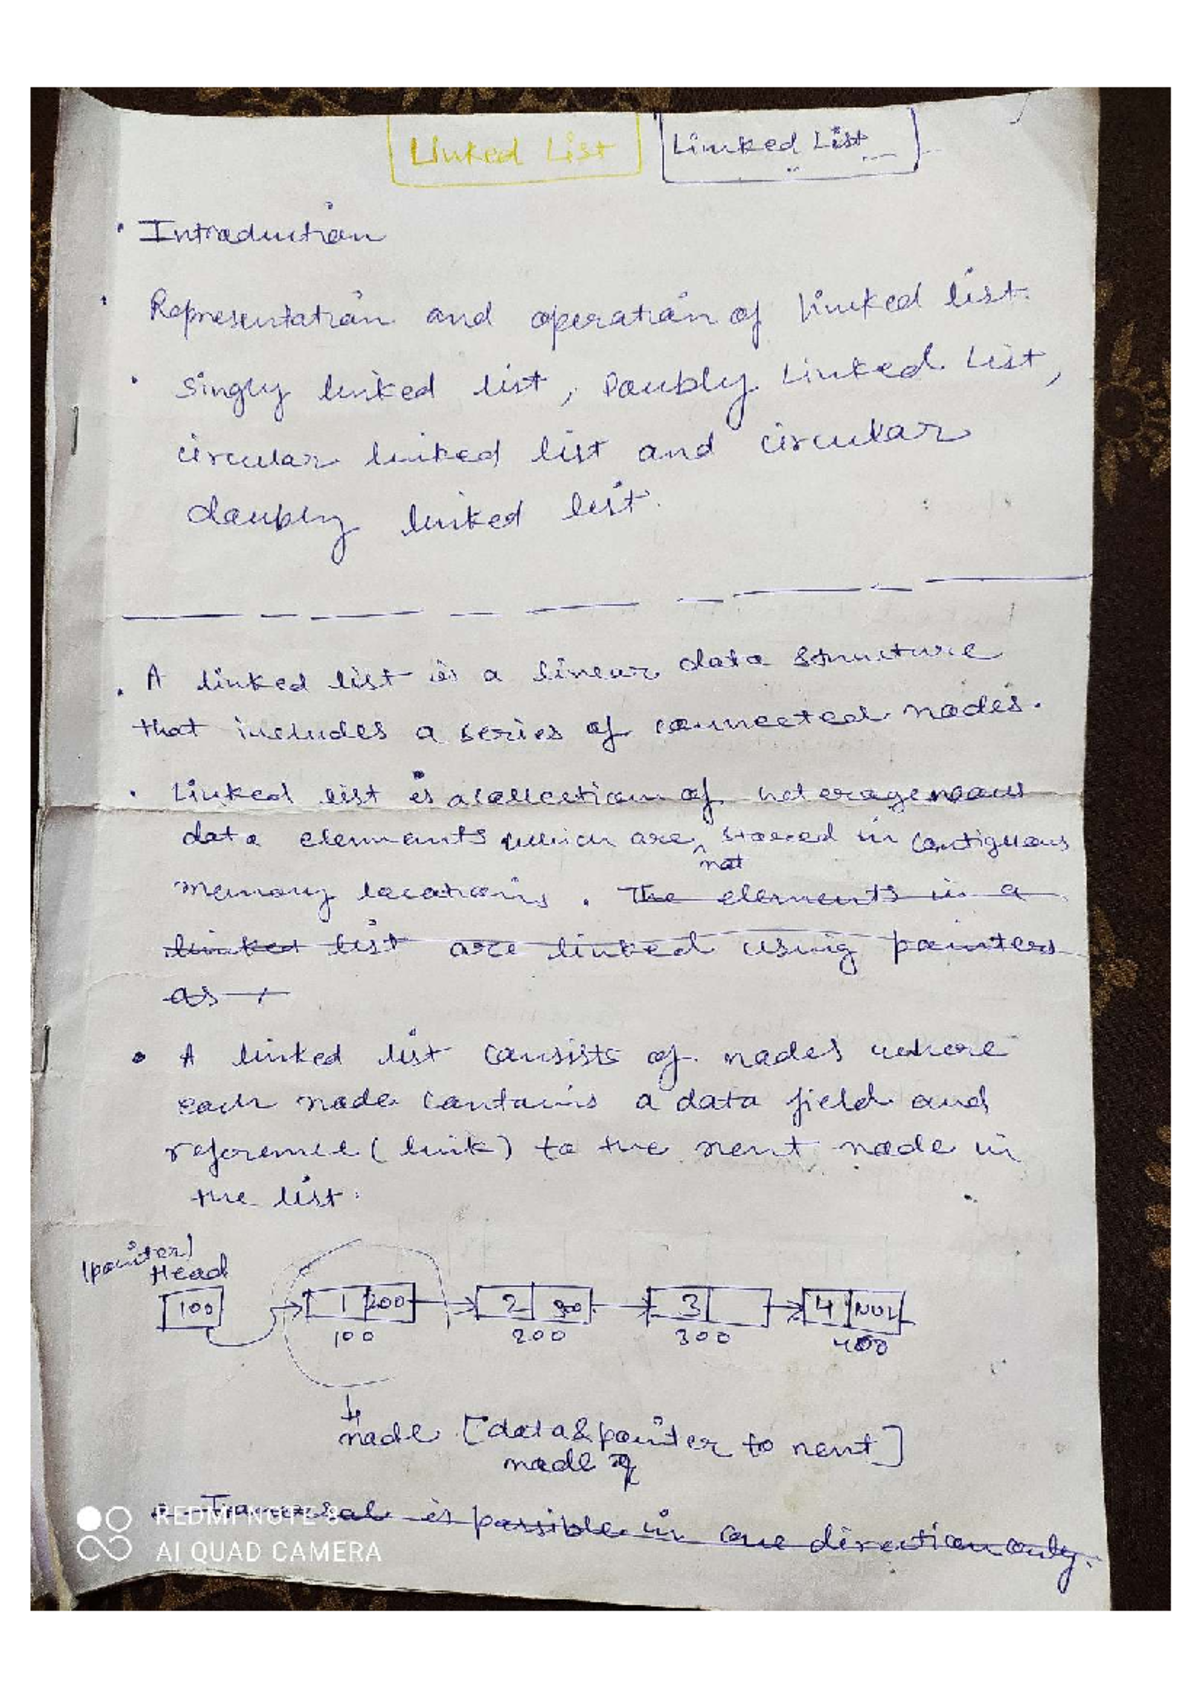 Linked List
Linked List
• Introduction
• Representation and operation of linked list.
• Singly linked list, Doubly Linked List,
circular linked list and circular
doubly linked list.
• A linked list is a linear data structure
that includes a series of connected nodes.
• Linked list is a collection of heterogeneous
data elements which are stored in contiguous
not
memory locations. The elements in a
linked list are linked using pointers
as
• A linked list consists of nodes where
each node contains a data field and
reference (link) to the next node in
the list.
(pointer)
Head
100 1 200 2 3 4 NULL
100 200 300 400
node [data & pointer to next]
node
• Traversal is possible in one direction only.
REDMI NOTE 8
AI QUAD CAMERA